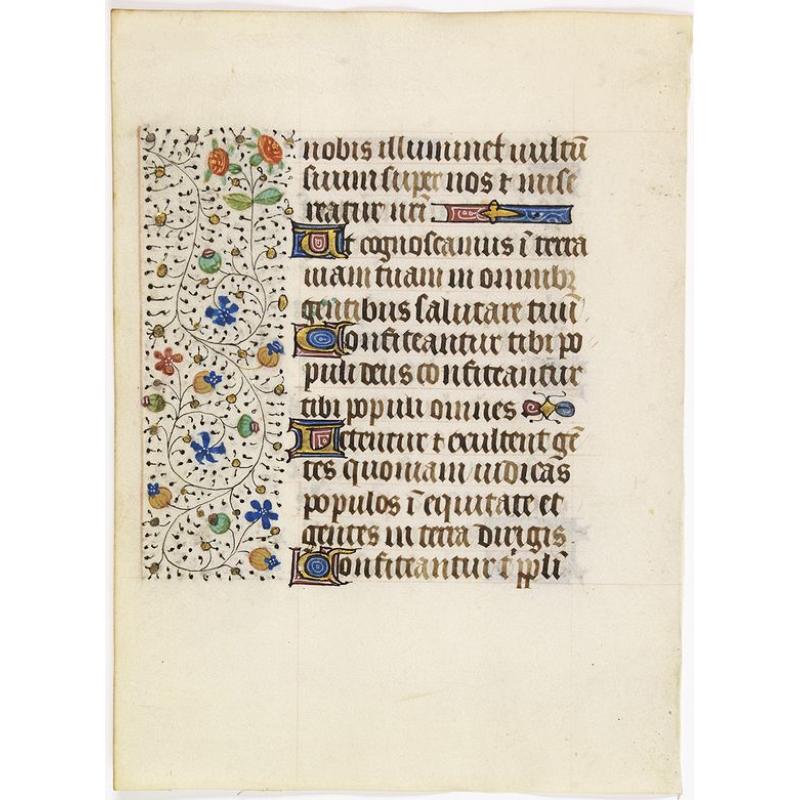 nobis illuminet uultū
suum super nos ⁊ mise
reatur nr̄i
Ut cognoscamus ī terra
uiam tuam in omnibꝫ
gentibus salutare tuū
Confiteantur tibi po
puli deus confiteantur
tibi populi omnes
Letentur ⁊ exultent gē
tes quoniam iudicas
populos ī equitate et
gentes in terra dirigis
Confiteantur t̄ ppli